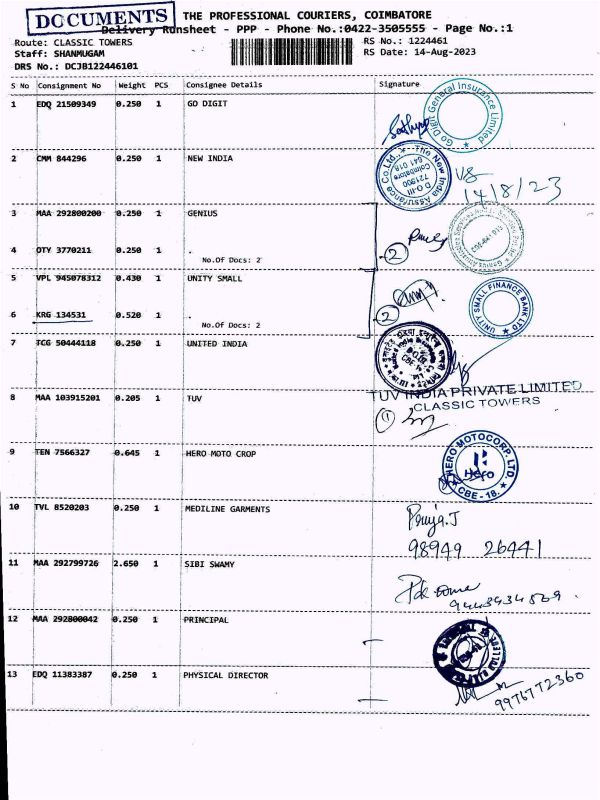 DOCUMENTS
THE PROFESSIONAL COURIERS, COIMBATORE
Delivery Runsheet - PPP - Phone No.:0422-3505555 - Page No.:1
Route: CLASSIC TOWERS
RS No.: 1224461
Staff: SHANMUGAM
RS Date: 14-Aug-2023
DRS No.: DCJB122446101
S No Consignment No Weight PCS Consignee Details Signature
1 EDQ 21509349 0.250 1 GO DIGIT
Go Digit General Insurance Limited
2 CMM 844296 0.250 1 NEW INDIA
The New India Assurance Co.Ltd.,
D O-III
721900
Coimbatore
641 018
14/8/23
3 MAA 292800200 0.250 1 GENIUS
4 OTY 3770211 0.250 1 .
No.Of Docs: 2
2
5 VPL 945078312 0.430 1 UNITY SMALL
6 KRG 134531 0.520 1 .
No.Of Docs: 2
2
UNITY SMALL FINANCE BANK LTD
7 TCG 50444118 0.250 1 UNITED INDIA
8 MAA 103915201 0.205 1 TUV
TUV INDIA PRIVATE LIMITED
CLASSIC TOWERS
1
9 TEN 7566327 0.645 1 HERO MOTO CROP
HERO MOTOCORP. LTD.
Hero
CBE - 18.
10 TVL 8520203 0.250 1 MEDILINE GARMENTS
98949 26441
11 MAA 292799726 2.650 1 SIBI SWAMY
9443434509
12 MAA 292800042 0.250 1 PRINCIPAL
13 EDQ 11383387 0.250 1 PHYSICAL DIRECTOR
9976772360